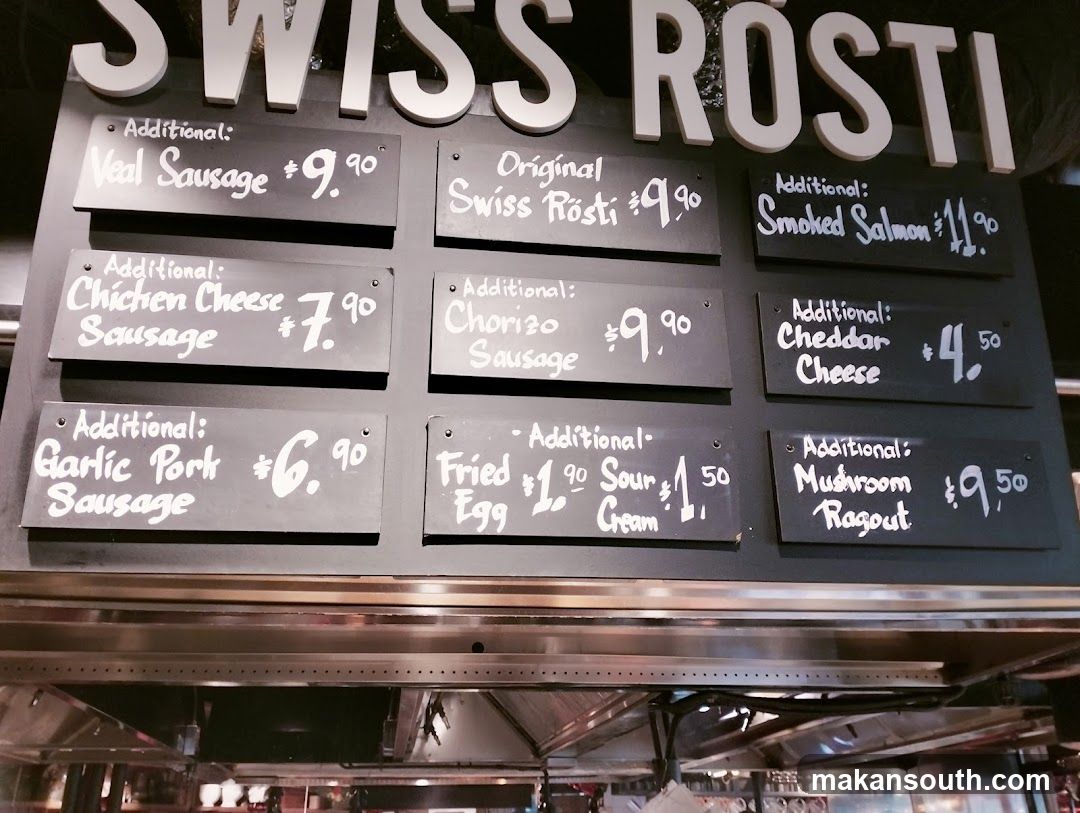 SWISS RÖSTI
Additional:
Veal Sausage $9.90
Additional:
Chicken Cheese
Sausage $7.90
Additional:
Garlic Pork
Sausage $6.90
Original
Swiss Rösti $9.90
Additional:
Chorizo
Sausage $9.90
-Additional-
Fried
Egg $1.90
Sour
Cream $1.50
Additional:
Smoked Salmon $11.90
Additional:
Cheddar
Cheese $4.50
Additional:
Mushroom
Ragout $9.50
makansouth.com